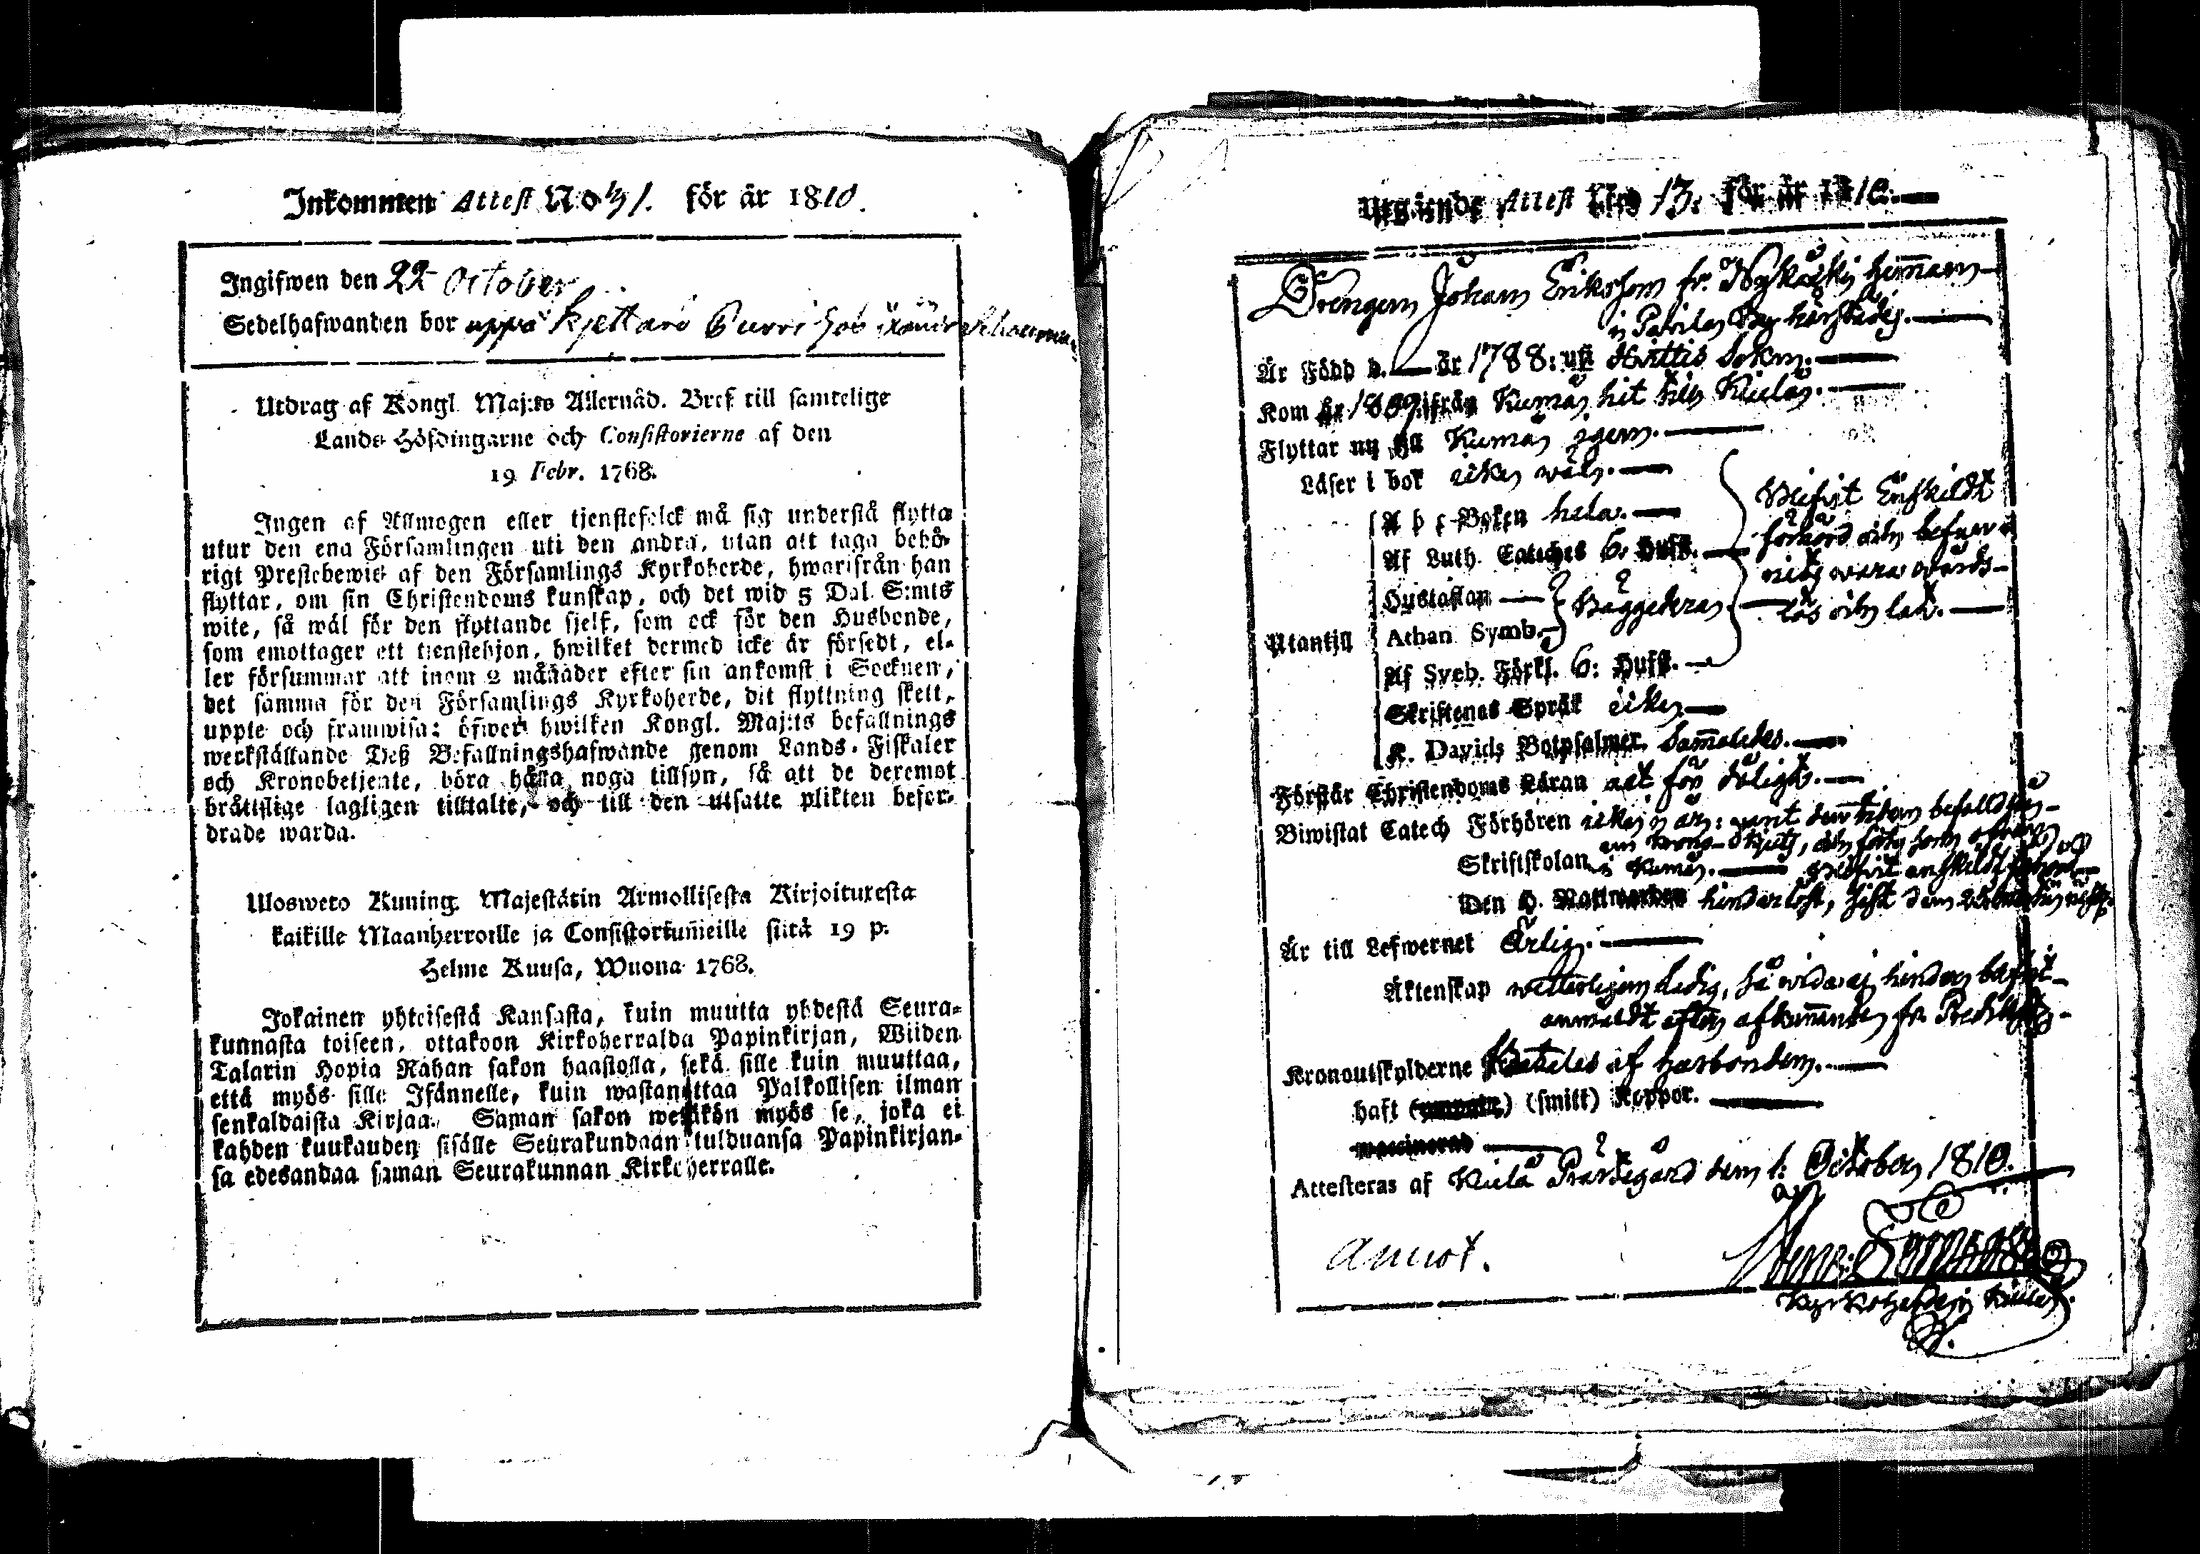 Inkommen Attest No 31. för år 1810.
Ingifwen den 22 October
Sedelhafwanden bor uppå Kjettari Purri hos
Utdrag af Kongl. Maj:ts Allernåd. Bref till samtelige
Lands-Höfdingarne och Consistorierne af den
19 Febr. 1768.
Ingen af Allmogen eller tjenstefolck må sig understå flytta
utur den ena Församlingen uti den andra, utan att taga behö-
rigt Prestebewis af den Församlings Kyrkoherde, hwarifrån han
flyttar, om sin Christendoms kunskap, och det wid 5 Dal. S:mts
wite, så wäl för den flyttande sjelf, som ock för den Husbonde,
som emottager ett tjenstehjon, hwilket dermed icke är försedt, el-
ler försummar att inom 2 månader efter sin ankomst i Socknen,
det samma för den Församlings Kyrkoherde, dit flyttning skett,
uppte och framwisa: öfwer hwilken Kongl. Maj:ts befallnings
werkställande Deß Befallningshafwande genom Lands-Fiskaler
och Kronobetjente, böra hålla noga tillsyn, så att de deremot
bråttslige lagligen tilltalte, och till den utsatte plikten befor-
drade warda.
Ulosweto Kuning. Majestätin Armollisesta Kirjoituxesta
kaikille Maanherroille ja Consistoriumeille siitä 19 p.
Helme Kuusa, Wuona 1768.
Jokainen yhteisestä Kansasta, kuin muutta yhdestä Seura-
kunnasta toiseen, ottakoon Kirkoherralda Papinkirjan, Wiiden
Talarin Hopia Rahan sakon haastolla, sekä sille kuin muuttaa,
että myös sille Isännelle, kuin wastanottaa Palkollisen ilman
senkaldaista Kirjaa. Saman sakon wetäkön myös se, joka ei
kahden kuukauden sisälle Seurakundaan tulduansa Papinkirjan-
sa edesandaa saman Seurakunnan Kirkoherralle.
Utgående Attest No 13. för år 1810.
Drengen Johan Eriksson fr. Nykäski hemman
i Pavila By härstädes.
Är Född d. — år 1788: uti Hvittis Sokn.
Kom år 1809 ifrån Kumå hit till Kiulo.
Flyttar nu till Kumå igen.
Läser i bok icke wäl.
Utantill
A b c-Boken hela.
Af Luth. Cateches 6. Huf.
Hustaflan
Athan Symb.
Häggdera
Af Sveb. Förkl. 6: Huf.
Skriftenes Språk icke
K. Davids Botpsalmer. Sammaledes.
Blifvit Enskildt
förhörd och befun-
nits vara vårds-
lös och lat.
Förstår Christendoms Läran
Biwistat Catech Förhören icke i år:
Skriftskolan i Kumå.
Den H. Nattwarden hinderlöst, sist den
Är till Lefwernet Ärlig.
Äktenskap wetterligen Ledig, så vida ej hinder
anmäldt efter afkunnande fr. Predikst.
Kronoutskylderne Betales af husbonden.
haft (smitt) Koppor.
vaccinerad
Attesteras af Kiulo Prästegård den 1: October 1810.
Annot.
Kyrkoherde i Kiulo.